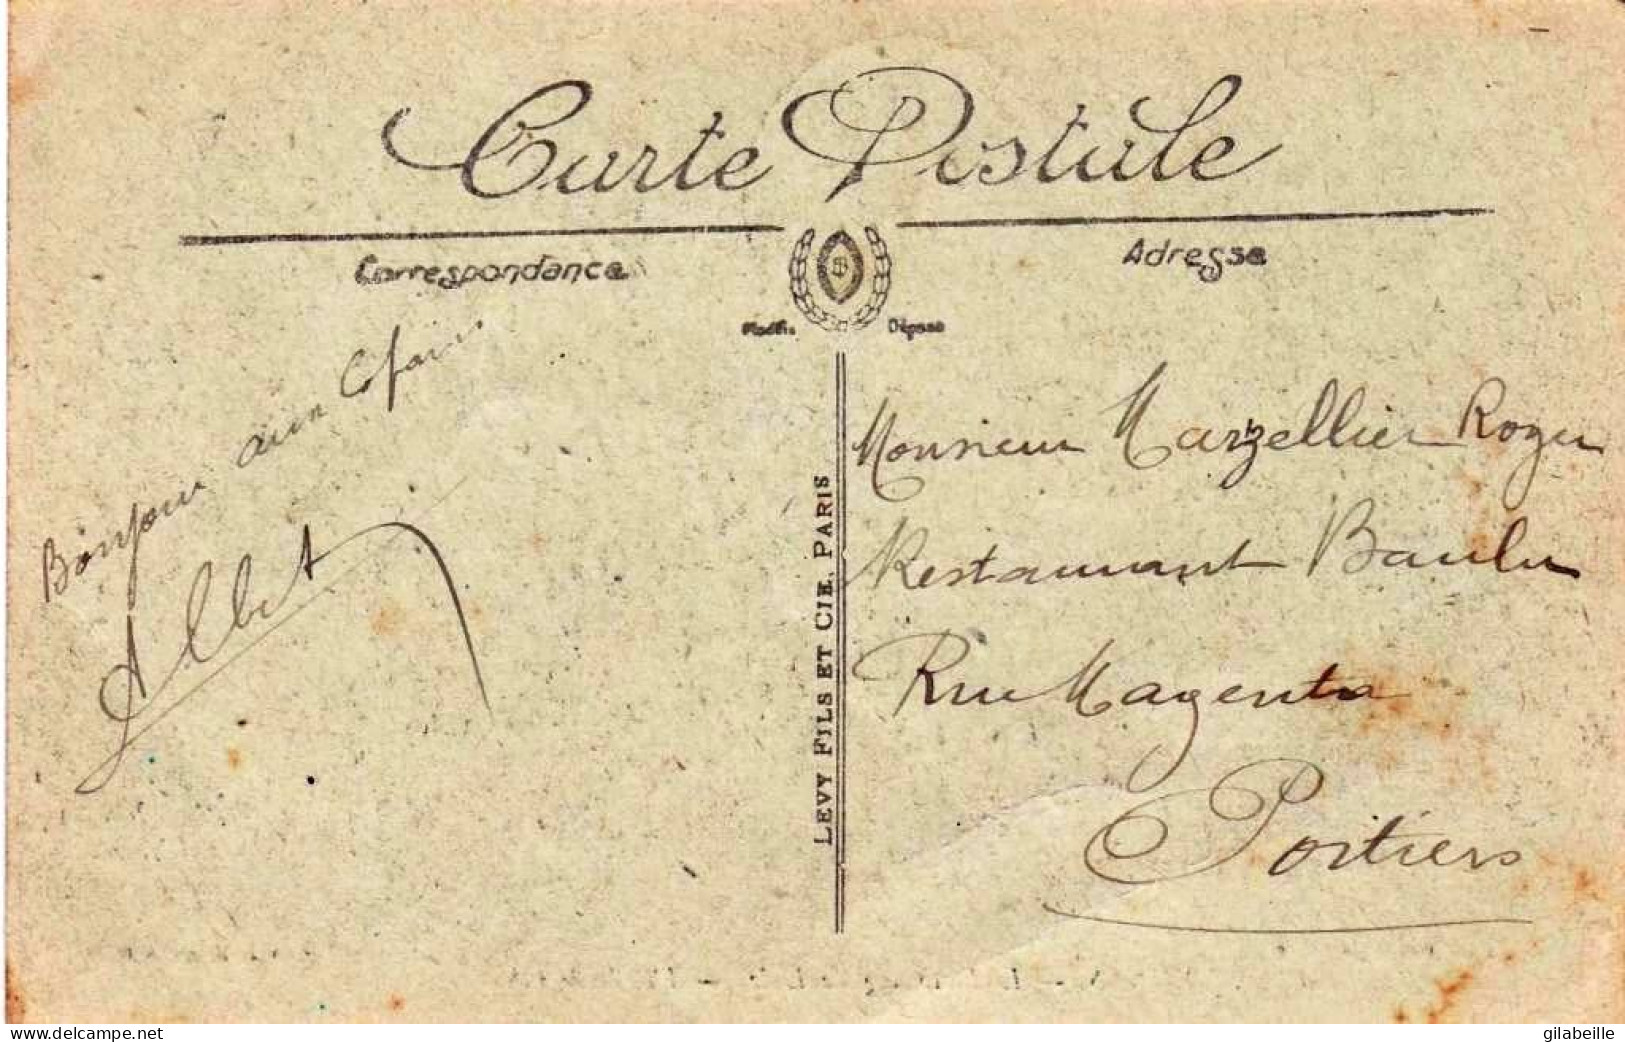 Carte Postale
Correspondance
Adresse
Marque Déposée
Bonjour aux Copains
Albert
LEVY FILS ET CIE, PARIS
Monsieur Marzellier Roger
Restaurant
Rue Magenta
Poitiers
www.delcampe.net
gilabeille